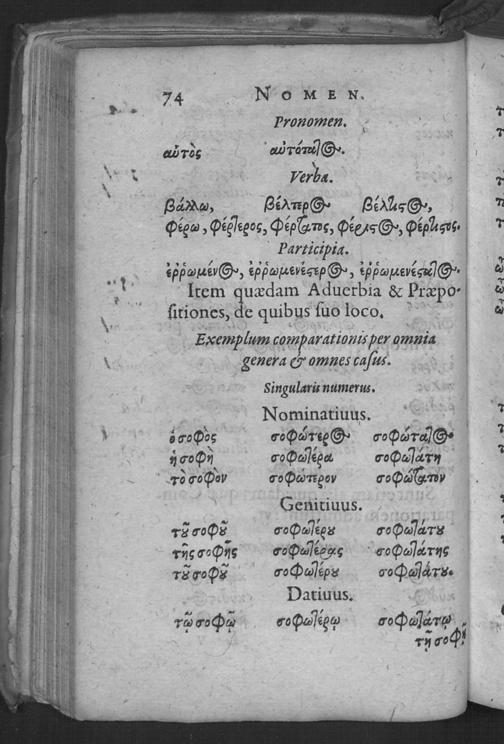 74 NOMEN.
Pronomen.
αὐτὸς αὐτότατος.
Verba.
βάλλω, βέλτερος βέλτιστος,
φέρω, φέρτερος, φέρτατος, φέριστος, φέρτιστος.
Participia.
ἐῤῥωμένος, ἐῤῥωμενέστερος, ἐῤῥωμενέστατος.
Item quædam Aduerbia & Præpo-
sitiones, de quibus suo loco.
Exemplum comparationis per omnia
genera & omnes casus.
Singularis numerus.
Nominatiuus.
ὁ σοφὸς σοφώτερος σοφώτατος
ἡ σοφὴ σοφωτέρα σοφωτάτη
τὸ σοφὸν σοφώτερον σοφώτατον
Genitiuus.
τοῦ σοφοῦ σοφωτέρου σοφωτάτου
τῆς σοφῆς σοφωτέρας σοφωτάτης
τοῦ σοφοῦ σοφωτέρου σοφωτάτου.
Datiuus.
τῷ σοφῷ σοφωτέρῳ σοφωτάτῳ
τῇ σοφῇ